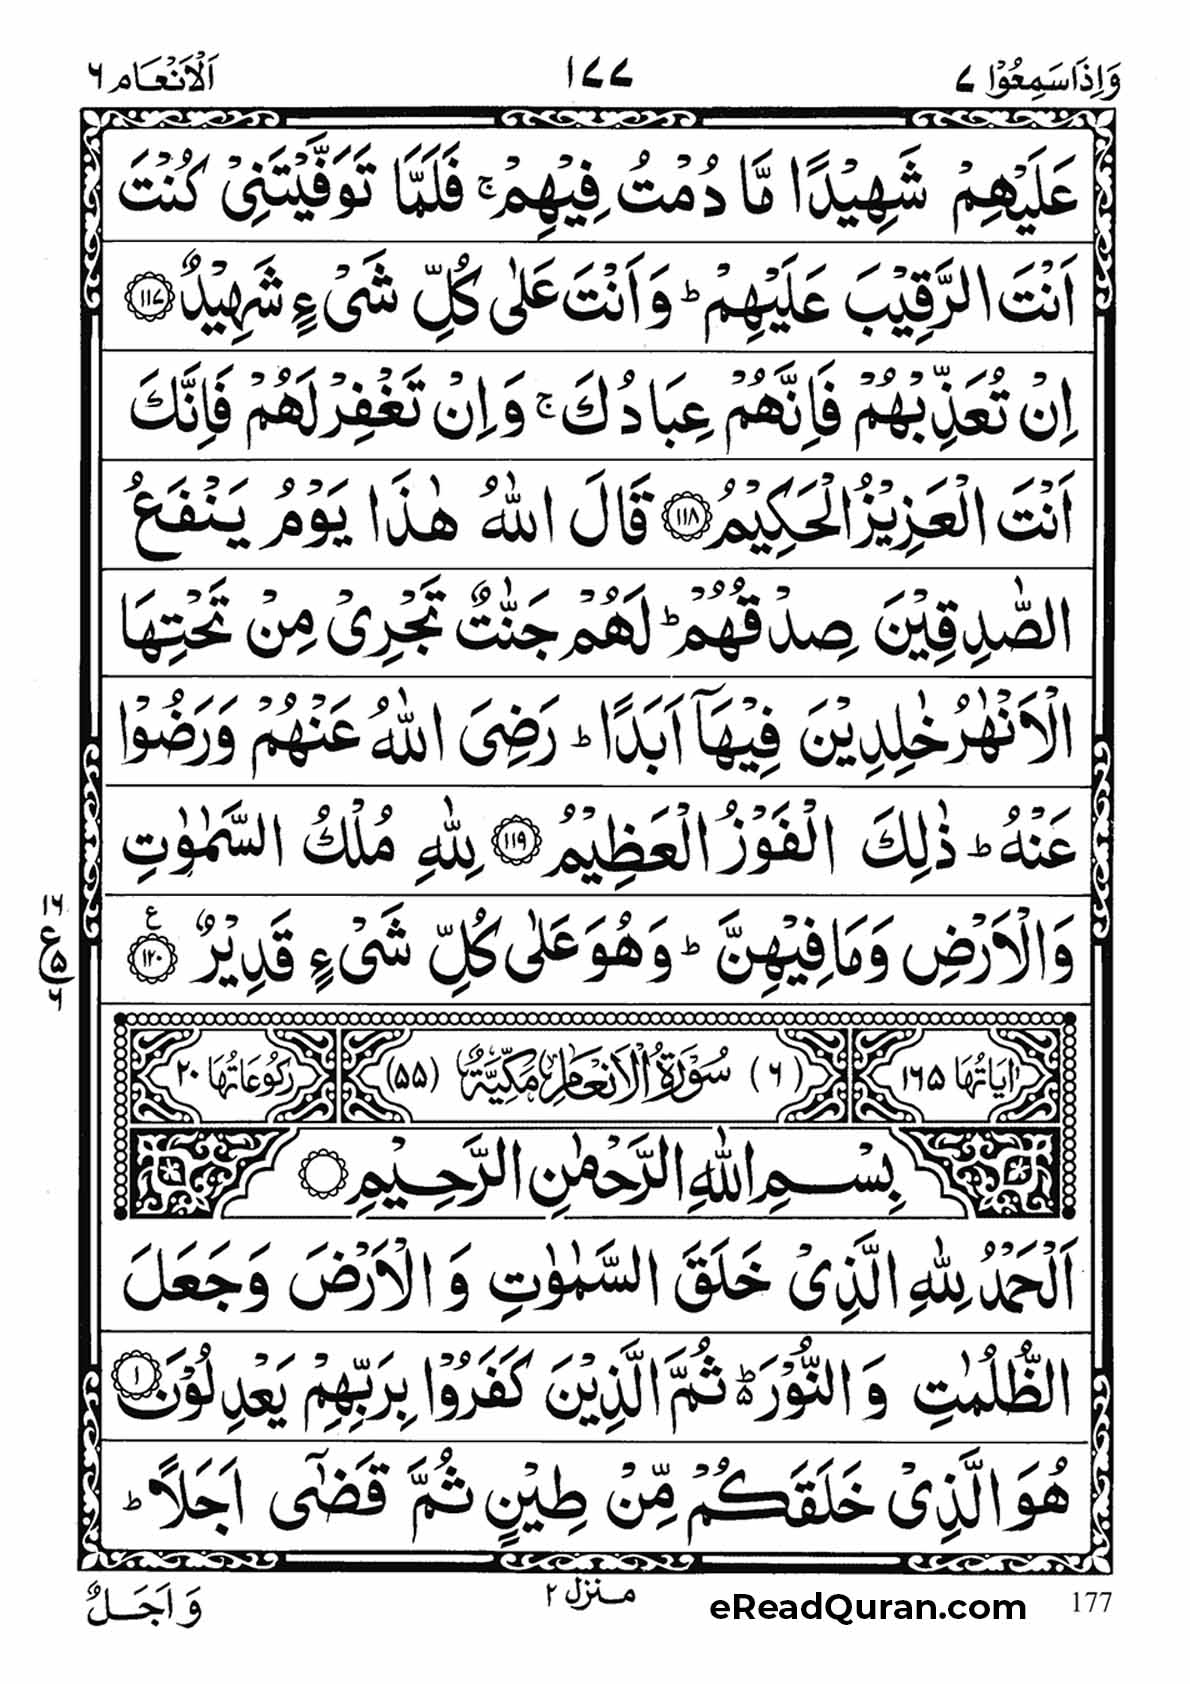 وَاِذَا سَمِعُوْا ۷
۱۷۷
اَلْاَنْعَام ۶
عَلَيْهِمْ شَهِيْدًا مَّا دُمْتُ فِيْهِمْ ۚ فَلَمَّا تَوَفَّيْتَنِيْ كُنْتَ
اَنْتَ الرَّقِيْبَ عَلَيْهِمْ ؕ وَاَنْتَ عَلٰى كُلِّ شَيْءٍ شَهِيْدٌ ﴿۱۱۷﴾
اِنْ تُعَذِّبْهُمْ فَاِنَّهُمْ عِبَادُكَ ۚ وَاِنْ تَغْفِرْ لَهُمْ فَاِنَّكَ
اَنْتَ الْعَزِيْزُ الْحَكِيْمُ ﴿۱۱۸﴾ قَالَ اللّٰهُ هٰذَا يَوْمُ يَنْفَعُ
الصّٰدِقِيْنَ صِدْقُهُمْ ؕ لَهُمْ جَنّٰتٌ تَجْرِيْ مِنْ تَحْتِهَا
الْاَنْهٰرُ خٰلِدِيْنَ فِيْهَاۤ اَبَدًا ؕ رَضِيَ اللّٰهُ عَنْهُمْ وَرَضُوْا
عَنْهُ ؕ ذٰلِكَ الْفَوْزُ الْعَظِيْمُ ﴿۱۱۹﴾ لِلّٰهِ مُلْكُ السَّمٰوٰتِ
وَالْاَرْضِ وَمَا فِيْهِنَّ ؕ وَهُوَ عَلٰى كُلِّ شَيْءٍ قَدِيْرٌ ﴿۱۲۰﴾ ع
۱۶
ع ۵
۶
اٰيَاتُهَا ۱۶۵
(۶) سُوْرَةُ الْاَنْعَامِ مَكِّيَّةٌ (۵۵)
رُكُوْعَاتُهَا ۲۰
بِسْمِ اللّٰهِ الرَّحْمٰنِ الرَّحِيْمِ
اَلْحَمْدُ لِلّٰهِ الَّذِيْ خَلَقَ السَّمٰوٰتِ وَالْاَرْضَ وَجَعَلَ
الظُّلُمٰتِ وَالنُّوْرَ ؕ۬ ثُمَّ الَّذِيْنَ كَفَرُوْا بِرَبِّهِمْ يَعْدِلُوْنَ ﴿۱﴾
هُوَ الَّذِيْ خَلَقَكُمْ مِّنْ طِيْنٍ ثُمَّ قَضٰۤى اَجَلًا ؕ
وَاَجَلٌ
منزل ۲
eReadQuran.com
177